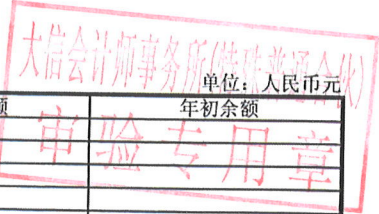 大信会计师事务所(特殊普通合伙)
单位：人民币元
额 年初余额
审验专用章